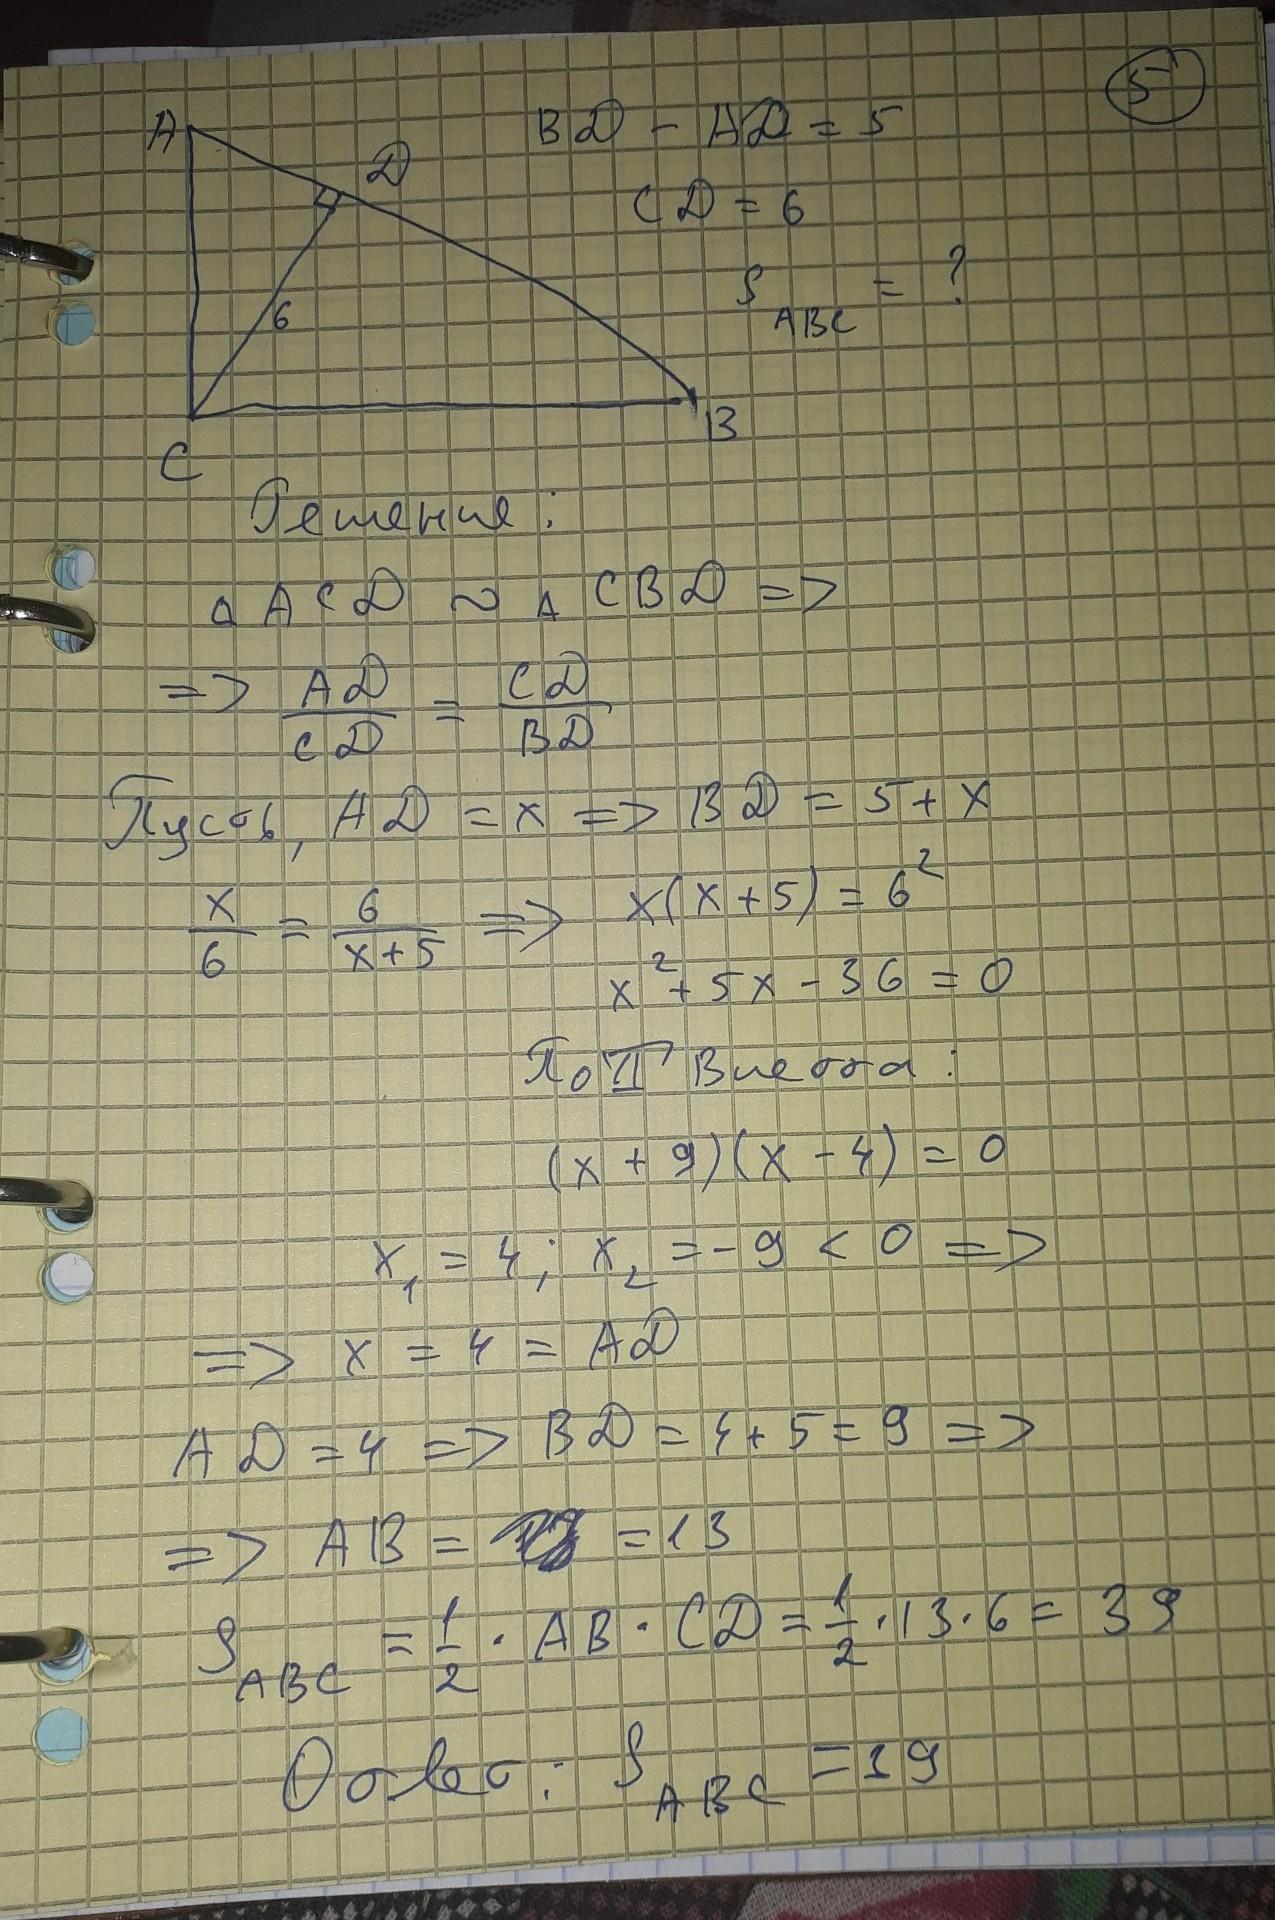 5
A
D
BD - AD = 5
CD = 6
6
S ABC = ?
C
B
Решение:
△ ACD ~ △ CBD =>
=> AD/CD = CD/BD
Пусть, AD = x => BD = 5 + x
x/6 = 6/(x+5) => x(x+5) = 6²
x² + 5x - 36 = 0
По Т Виетта:
(x + 9)(x - 4) = 0
x₁ = 4; x₂ = -9 < 0 =>
=> x = 4 = AD
AD = 4 => BD = 4 + 5 = 9 =>
=> AB = = 13
S ABC = 1/2 · AB · CD = 1/2 · 13 · 6 = 39
Ответ: S ABC = 39